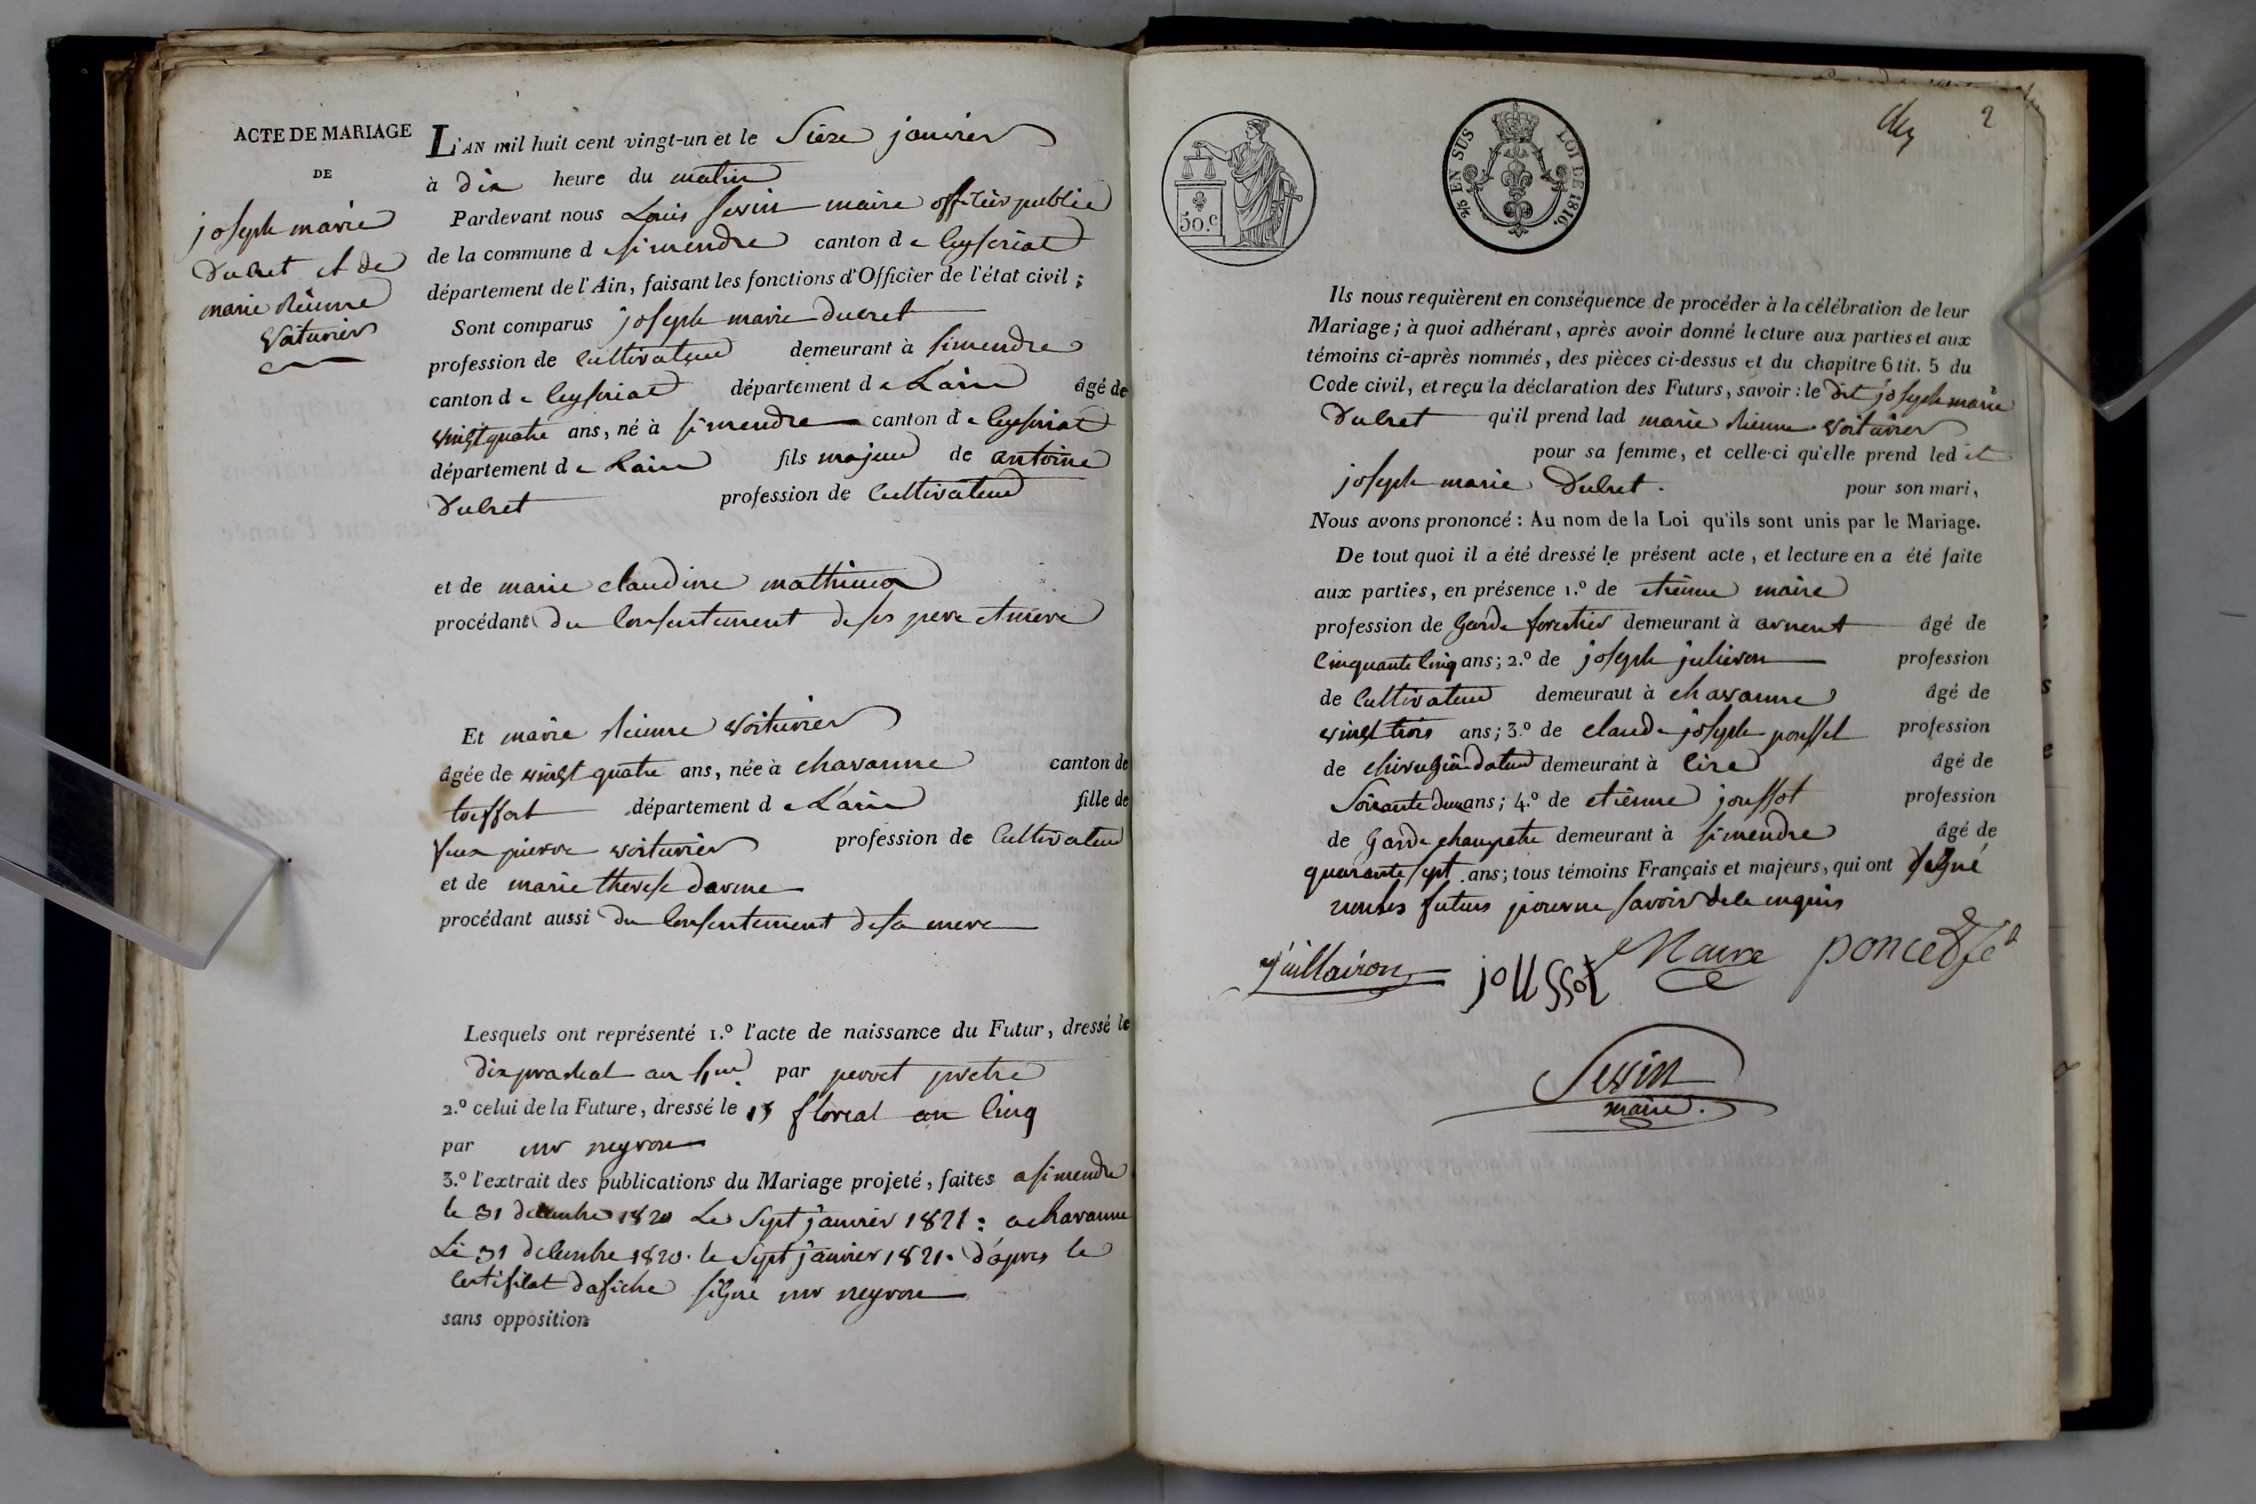 ACTE DE MARIAGE
DE
joseph marie
Ducret et de
marie etienne
Voiturier
L'AN mil huit cent vingt-un et le Sieze janvier
à dix heure du matin
Pardevant nous Louis sevin maire offitier public
de la commune d simendre canton de Ceyseriat
département de l'Ain, faisant les fonctions d'Officier de l'état civil ;
Sont comparus joseph marie ducret
profession de Cultivateur demeurant à simendre
canton de Ceyseriat département de Lain âgé de
vingt quatre ans, né à simendre canton de Ceyseriat
département de Lain fils majeur de antoine
Ducret profession de Cultivateur
et de marie claudine mathieu
procédant du Consentement de ses pere et mere
Et marie etienne voiturier
âgée de vingt quatre ans, née à chavanne canton de
treffort département de Lain fille de
feux pierre voiturier profession de Cultivateur
et de marie therese darme
procédant aussi du Consentement de sa mere
Lesquels ont représenté 1.º l'acte de naissance du Futur, dressé le
dix prarial an 4me par perret pretre
2.º celui de la Future, dressé le 15 floreal an Cinq
par mr neyron
3.º l'extrait des publications du Mariage projeté, faites a simendre
le 31 decembre 1820 Le Sept janvier 1821 : a chavanne
Le 31 decembre 1820. le Sept janvier 1821. d'apres le
Certificat dafiche signé mr neyron
sans opposition
50.c
2/5 EN SUS LOI DE 1816.
2
Ils nous requièrent en conséquence de procéder à la célébration de leur
Mariage ; à quoi adhérant, après avoir donné lecture aux parties et aux
témoins ci-après nommés, des pièces ci-dessus et du chapitre 6 tit. 5 du
Code civil, et reçu la déclaration des Futurs, savoir : le dit joseph marie
Ducret qu'il prend lad marie etienne voiturier
pour sa femme, et celle-ci qu'elle prend led it
joseph marie Ducret. pour son mari,
Nous avons prononcé : Au nom de la Loi qu'ils sont unis par le Mariage.
De tout quoi il a été dressé le présent acte, et lecture en a été faite
aux parties, en présence 1.º de etienne maire
profession de Garde forestier demeurant à arnent âgé de
Cinquante Cinq ans ; 2.º de joseph julieron profession
de Cultivateur demeuraut à chavanne âgé de
vingt trois ans ; 3.º de claude joseph profession
de demeurant à cire âgé de
Soixante deux ans ; 4.º de etienne joussot profession
de Garde champetre demeurant à simendre âgé de
quarante sept ans ; tous témoins Français et majeurs, qui ont signé
non les futurs pour ne savoir de ce enquis
juillairon joussot Maire poncet
Sevin
maire.